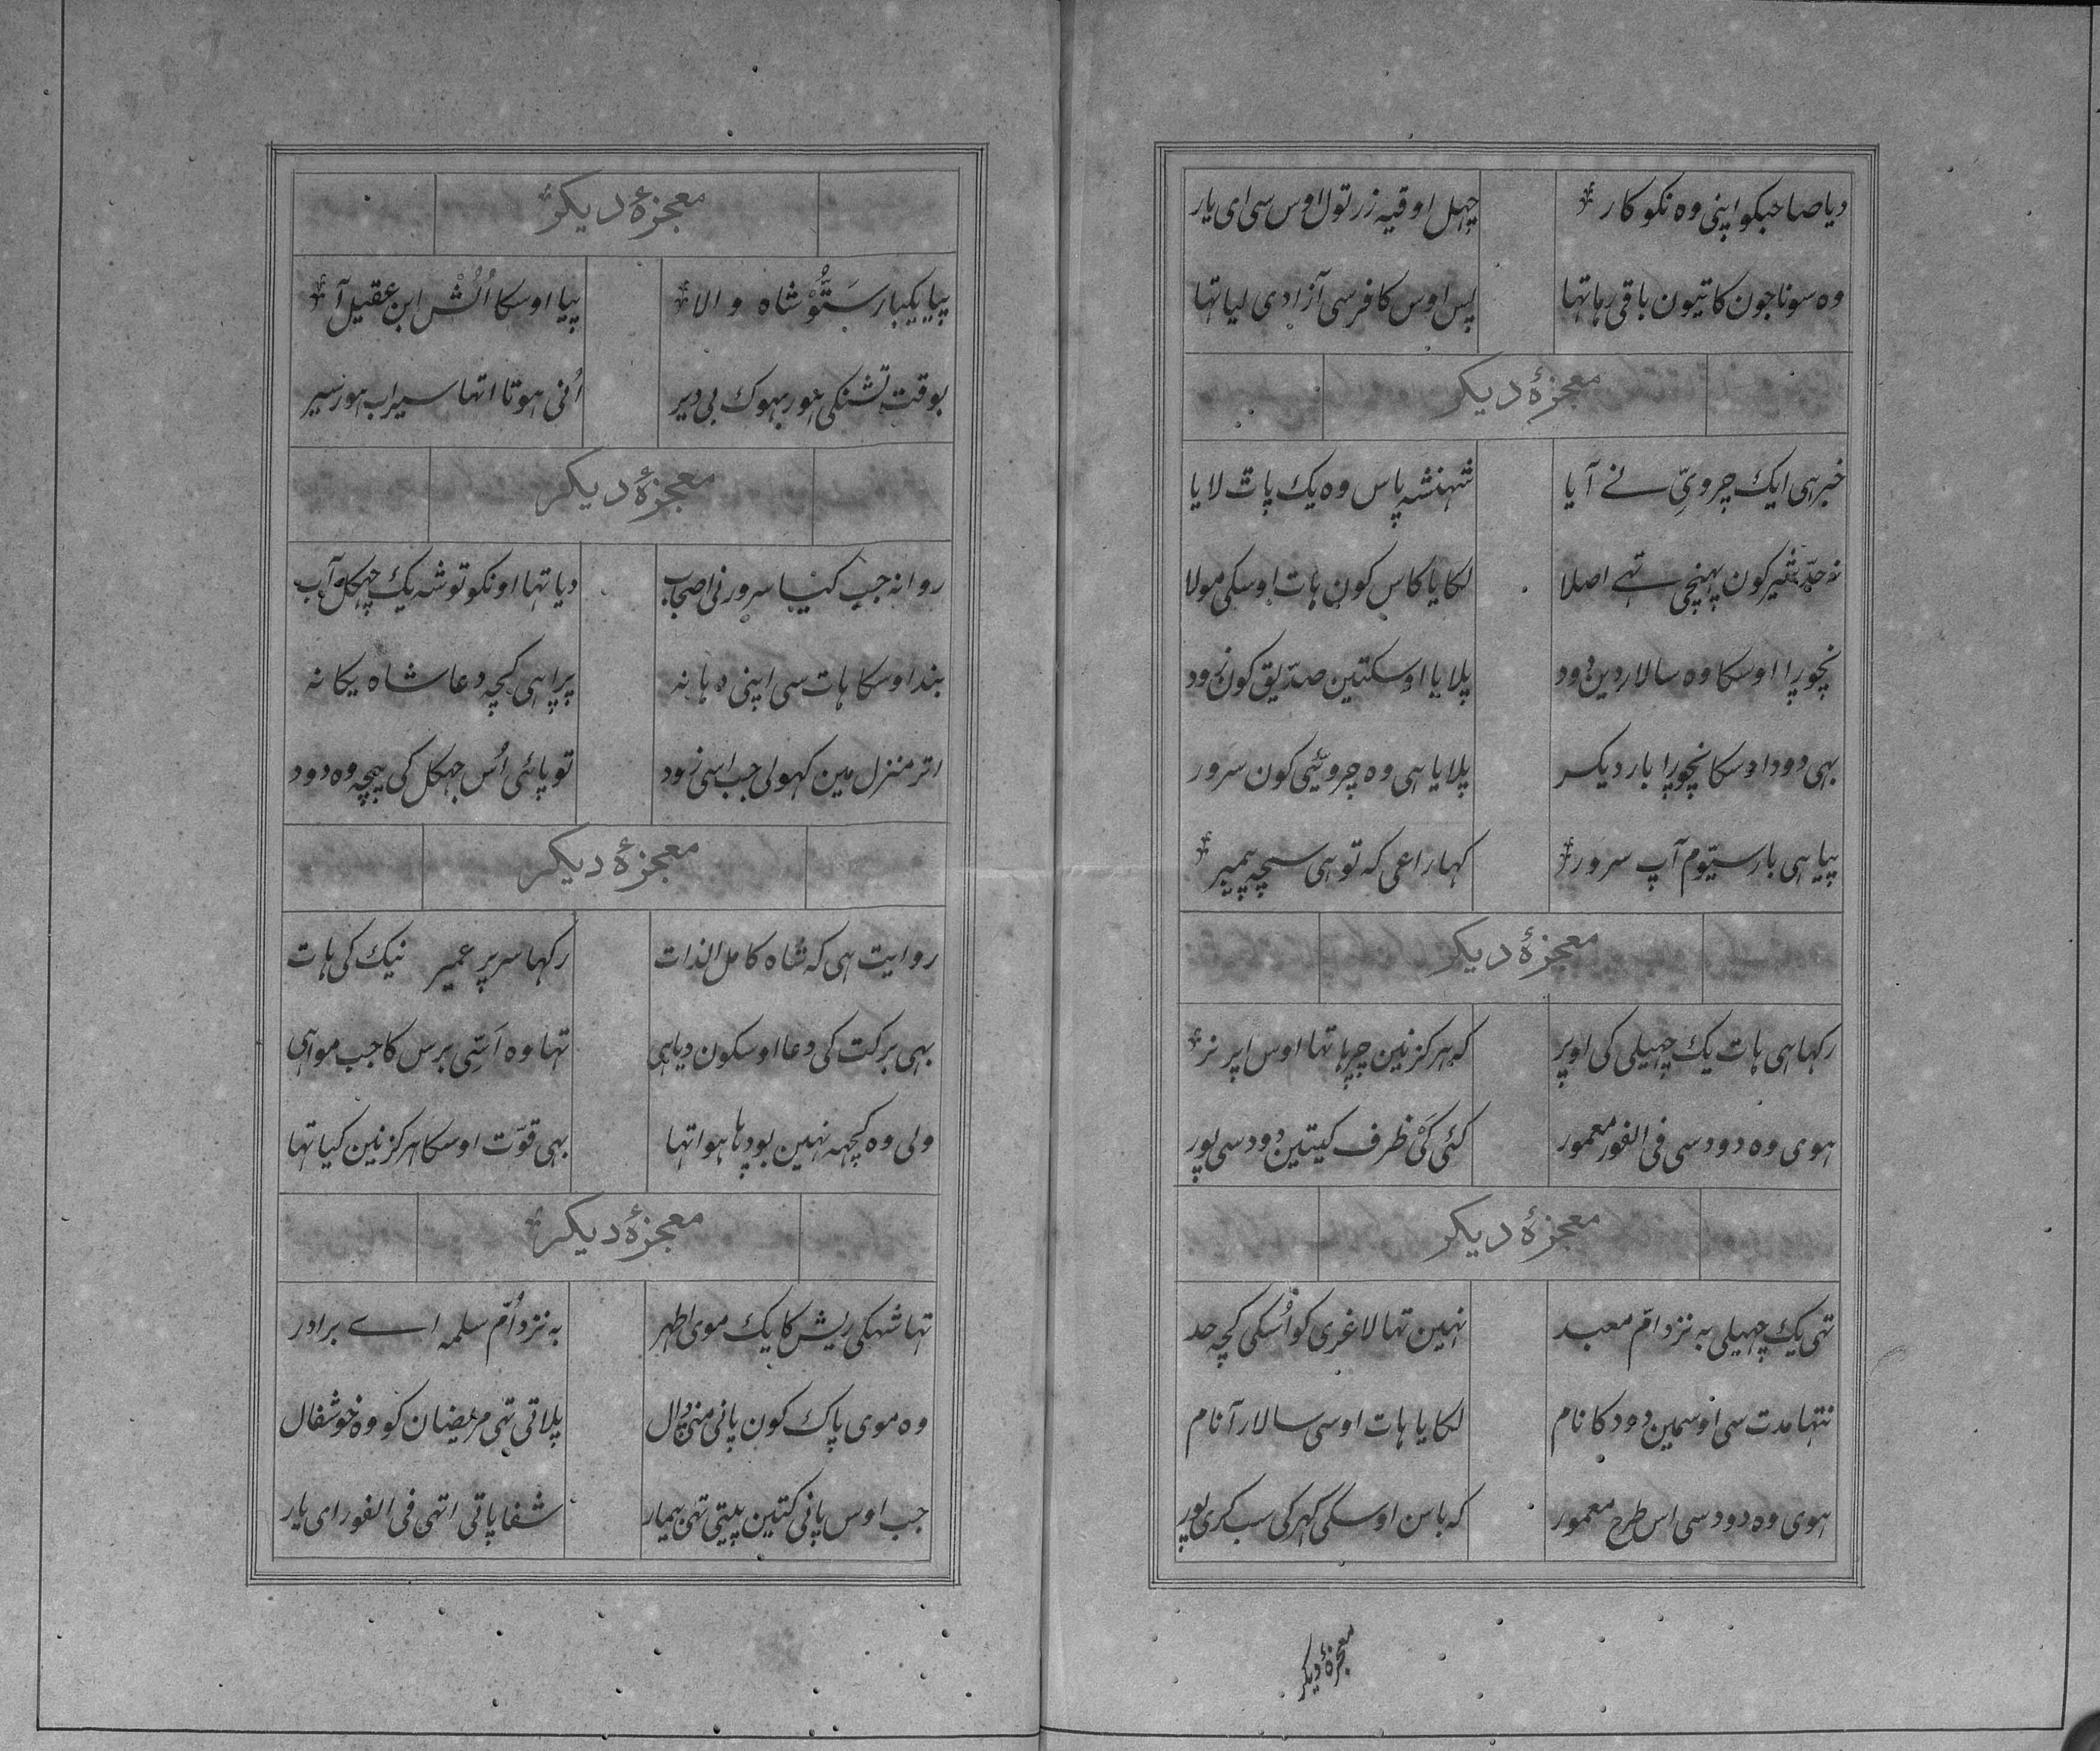 دیا صاحبکو اپنی وہ نکو کار چہل اوقیہ زر تول اوس سی ای یار
وہ سونا جون کاتیون باقی رہا تہا پس اوس کافر سی آزادی لیا تہا
معجزۂ دیکر
خبر ہی ایک چرویّ نے آیا شہنشہ پاس وہ یک پات لایا
نہ حدّ شیر کون پہنچی تہے اصلا لکایا کاس کون ہات اوسکی مولا
نچورا اوسکا وہ سالار دین دود پلایا اوسکتین صدّیق کون زود
بہی دود اوسکا نچورا بار دیکر پلایا ہی وہ چرویّئی کون سرور
پیا ہی بار سیّوم آپ سرور کہا راعی کہ تو ہی سچہ پیمبر
معجزۂ دیکر
رکہا ہی ہات یک چہیلی کی اوپر کہ ہرکز نین چرہا تہا اوس اپر نر
ہوی وہ دود سی فی الفور معمور کئی کَیْ ظرف کیتین دود سی پور
معجزۂ دیکر
تہی یک چہیلی بہ نزد امّ معبد نہین تہا لاغری کو اُسکی کچہ حد
نتہا مدت سی اوسمین دود کا نام لکایا ہات اوسی سالار آنام
ہوی وہ دود سی اس طرح معمور کہ باسن اوسکی کہر کی سب کری پور
معجزۂ دیکر
معجزۂ دیکر
پیا یکبار سَتُّوْ شاہ والا پیا اوسکا اُلُشْ ابن عقیل آ
بوقت تشنکی ہور بہوک بی دیر اُنی ہوتا اتہا سیراب ہور سیر
معجزۂ دیکر
روانہ جب کیا سرور نی اصحاب دیا تہا اونکو توشہ یک چہکل آب
بند اوسکا ہات سی اپنی دہانہ پرا ہی کچہ دعا شاہ یکانہ
اتر منزل مین کہولی جب اسی زود تو پائی اُس چہکل کی بیچہ وہ دود
معجزۂ دیکر
روایت ہی کہ شاہ کامل الذات رکہا سر پر عمیر نیک کی ہات
بہی برکت کی دعا اوسکون دیا ہی تہا وہ اَسّی برس کا جب موا ہی
ولی وہ کچہہ نہین بودہا ہوا تہا بہی قوّت اوسکا ہرکز نین کیا تہا
معجزۂ دیکر
تہا شہکی ریش کا یک موی اطہر بہ نزد اُمّ سلمہ اے برادر
وہ موی پاک کون پانی منی دال پلاتی تہی مریضان کو وہ خوشفال
جب اوس پانی کتین پیتی تہی بیمار شفا پاتی اتہی فی الفور ای یار